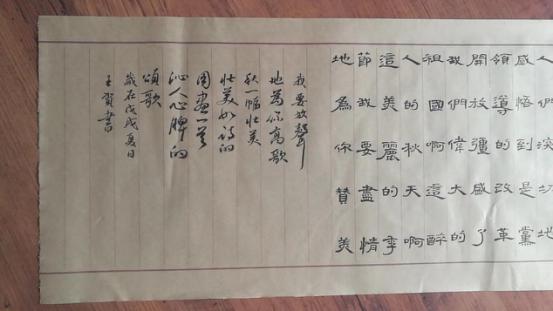 人們深切地
感悟到是黨
領導的改革
開放彊盛了
我們偉大的
祖國啊這醉
人的秋天啊
這美麗的季
節我要盡情
地為你贊美
我要放聲
地為你高歌
秋一幅壯美
壯美如詩的
图畫一首
沁人心脾的
頌歌
歲在戊戌夏日
王 書